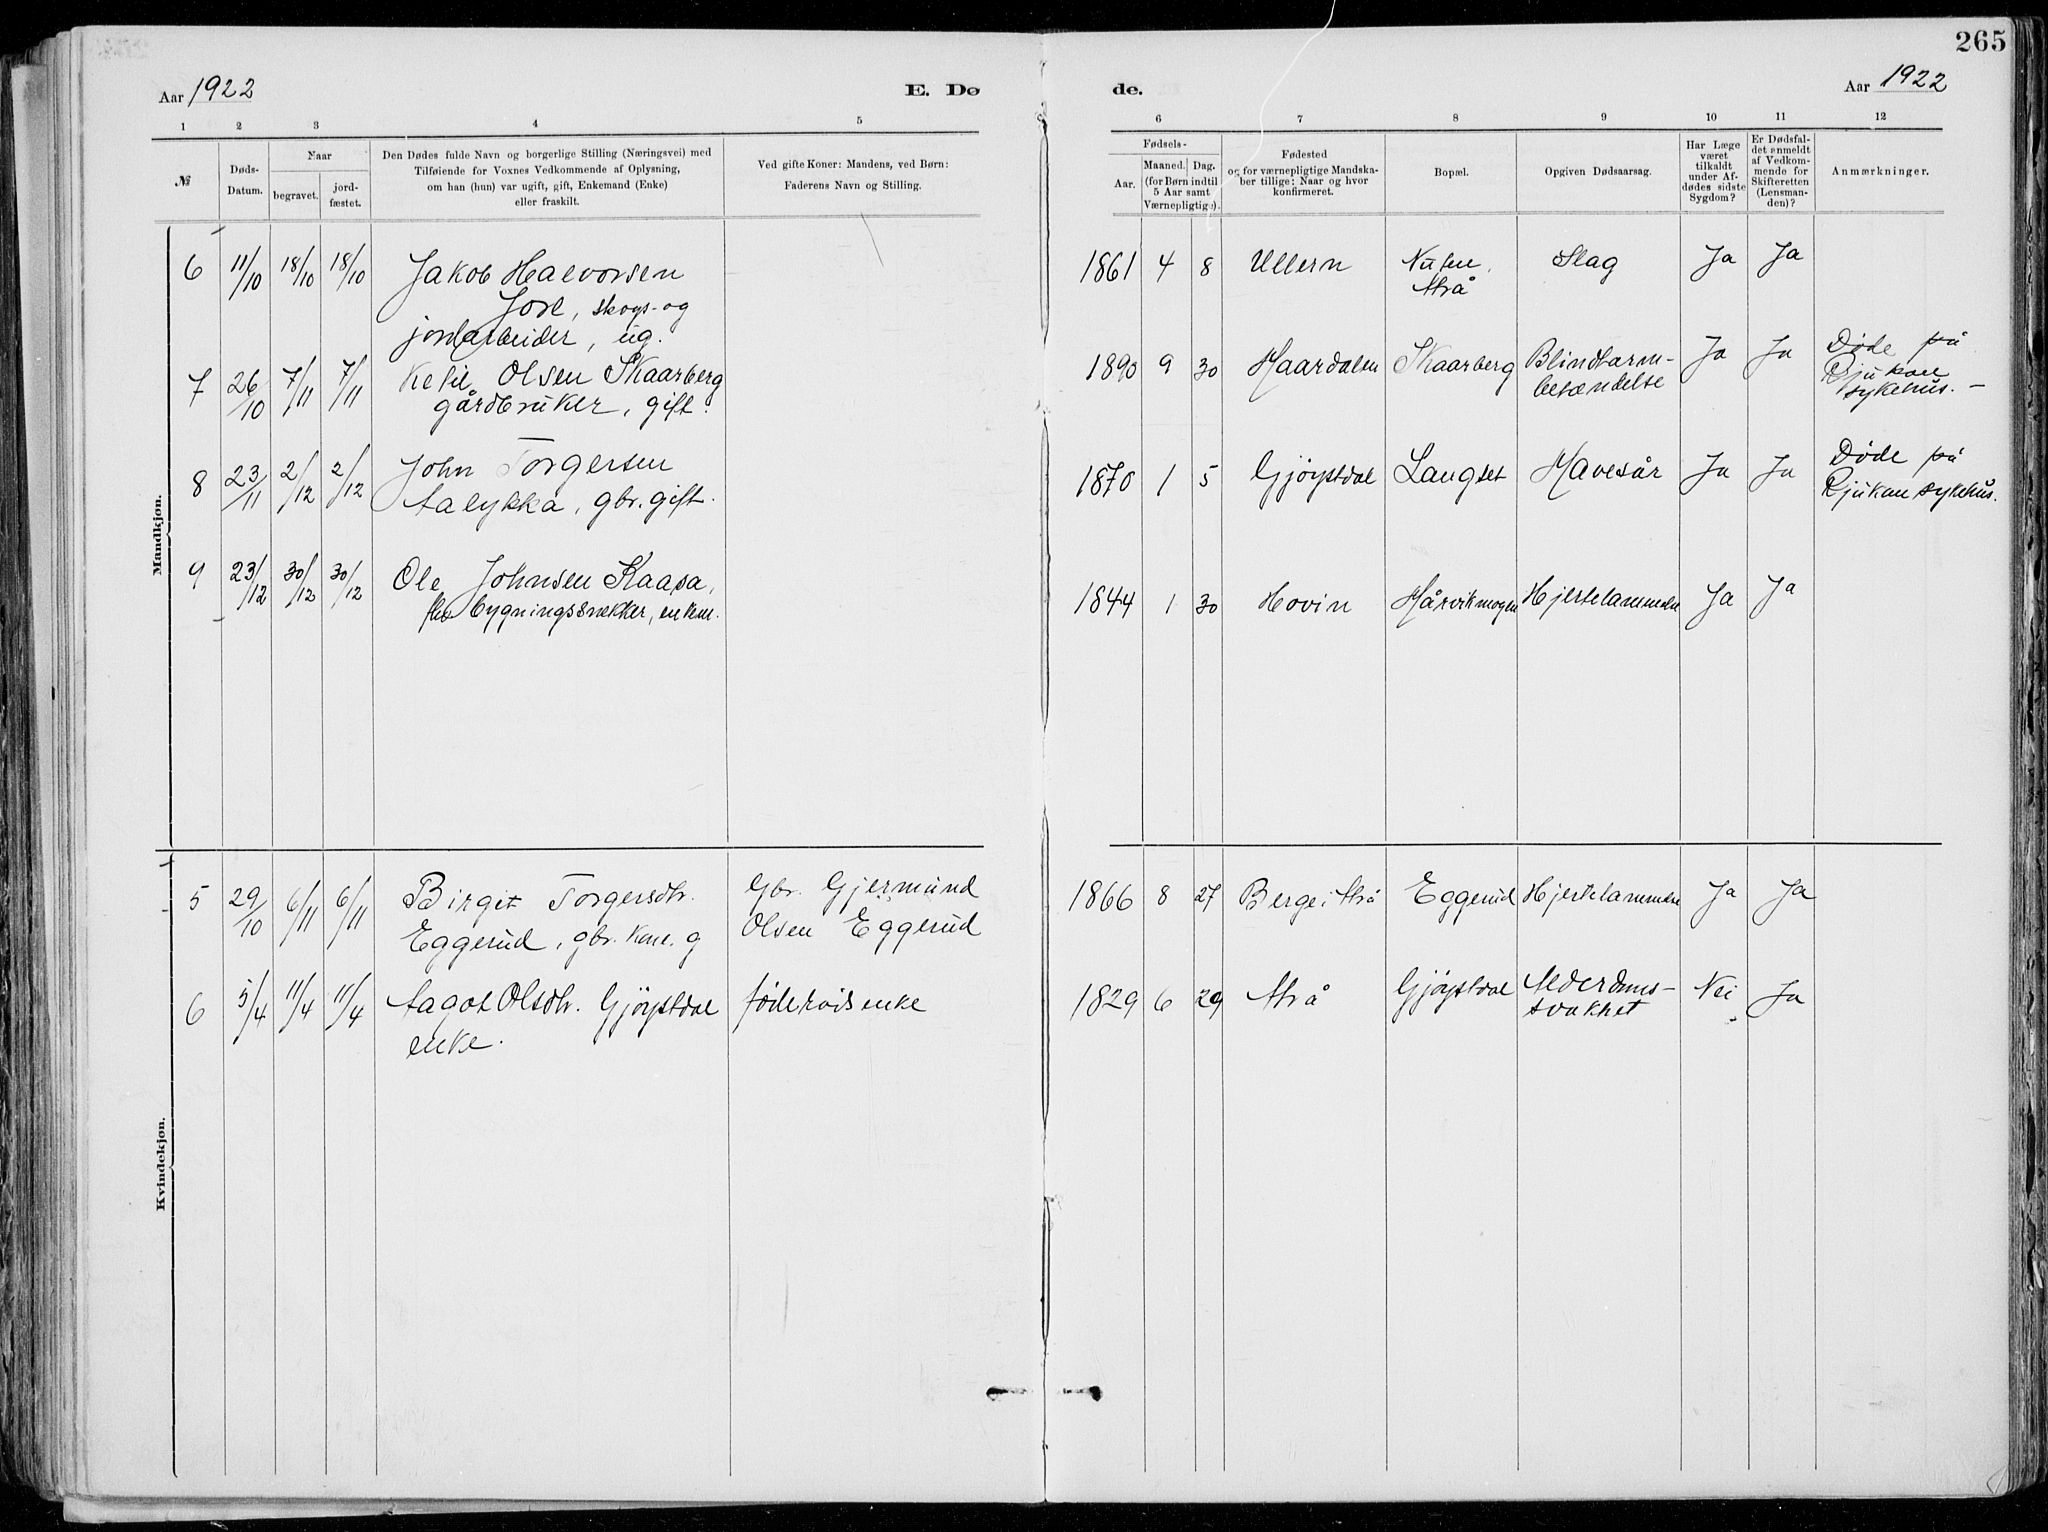 265
Aar 1922
E. Dø
de.
Aar 1922
1 2 3 4 5
6 7 8 9 10 11 12
№
Døds-
Datum.
Naar
begravet.
jord-
fæstet.
Den Dødes fulde Navn og borgerlige Stilling (Næringsvei) med
Tilføiende for Voxnes Vedkommende af Oplysning,
om han (hun) var ugift, gift, Enkemand (Enke)
eller fraskilt.
Ved gifte Koner: Mandens, ved Børn:
Faderens Navn og Stilling.
Fødsels-
Aar.
Maaned. Dag.
(for Børn indtil
5 Aar samt
Værnepligtige).
Fødested
og for værnepligtige Mandska-
ber tillige: Naar og hvor
konfirmeret.
Bopæl.
Opgiven Dødsaarsag.
Har Læge
været
tilkaldt
under Af-
dødes sidste
Sygdom?
Er Dødsfal-
det anmeldt
af Vedkom-
mende for
Skifteretten
(Lensman-
den)?
Anmærkninger.
Mandkjøn.
6 11/10 18/10 18/10 Jakob Halvorsen
skogs- og
jordarbeider, ug.
1861 4 8 Ullern
Atrå
Slag Ja Ja
7 26/10 7/11 7/11 Ketil Olsen Skaarberg
gårdbruker, gift.
1890 9 30 Maardalen Skaarberg Blindtarm-
betændelse
Ja Ja
Døde på
Rjukan
sykehus. –
8 23/11 2/12 2/12 John Torgersen
Aalykka, gbr. gift.
1870 1 5 Gjøystdal Langset Mavesår Ja Ja
Døde på
Rjukan sykehus.
9 23/12 30/12 30/12 Ole Johnsen Kaasa,
bygningssnekker, enkem.
1844 1 30 Hovin Mårvikmogen Hjertelammelse Ja Ja
Kvindekjøn.
5 29/10 6/11 6/11 Birget Torgersdtr.
Eggerud, gbr. kone. g
Gbr. Gjermund
Olsen Eggerud
1866 8 27 Berge i Atrå Eggerud Hjertelammelse Ja Ja
6 5/4 11/4 11/4 Aagot Olsdtr. Gjøystdal
enke.
føderådsenke
1829 6 29 Atrå Gjøystdal Alderdoms-
svakhet
Nei Ja